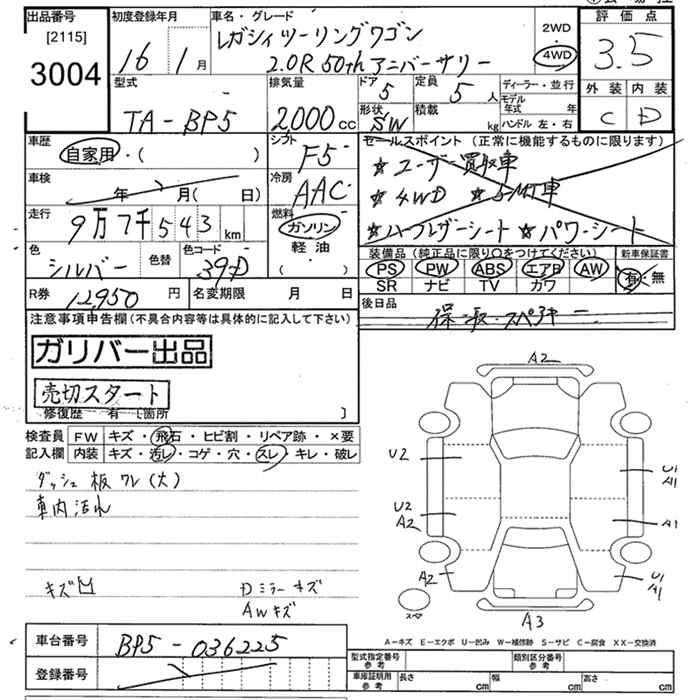 出品番号
[2115]
3004
初度登録年月
16 1月
車名・グレード
レガシィツーリングワゴン
2.0R 50th アニバーサリー
2WD
4WD
評価点
3.5
外装 内装
C D
型式
TA-BP5
排気量
2,000cc
ドア
5
定員
5人
形状
SW
積載
kg
ディーラー・並行
モデル年式 年
ハンドル 左・右
車歴
自家用・( )
シフト
F5
車検
年 月( 日)
冷房
AAC
走行
9万7千543km
燃料
ガソリン
軽油
・( )
色
シルバー
色替
色コード
39D
R券
12,950円
名変期限 月 日
セールスポイント (正常に機能するものに限ります)
☆ユーザー買取車
☆4WD ☆5MT車
☆ハーフレザーシート ☆パワーシート
装備品(純正品に限り○をつけてください)
PS PW ABS エアB AW
SR ナビ TV カワ
新車保証書
有・無
後日品
保・取・スペアキー
注意事項申告欄(不具合内容等は具体的に記入して下さい)
ガリバー出品
売切スタート
修復歴 有[箇所 ]
検査員記入欄
FW キズ・飛石・ヒビ割・リペア跡・×要
内装 キズ・汚レ・コゲ・穴・スレ・キレ・破レ
ダッシュ板ワレ(大)
車内汚れ
キズ凹
Dミラーキズ
AWキズ
A2
U2
U1
A1
U2
A2
A1
A2
U1
A1
スペア
A3
A-キズ E-エクボ U-凹み W-補修跡 S-サビ C-腐食 XX-交換済
車台番号
BP5-036225
登録番号
型式指定番号
参考
類別区分番号
参考
車庫証明用
参考
長さ cm
幅 cm
高さ cm